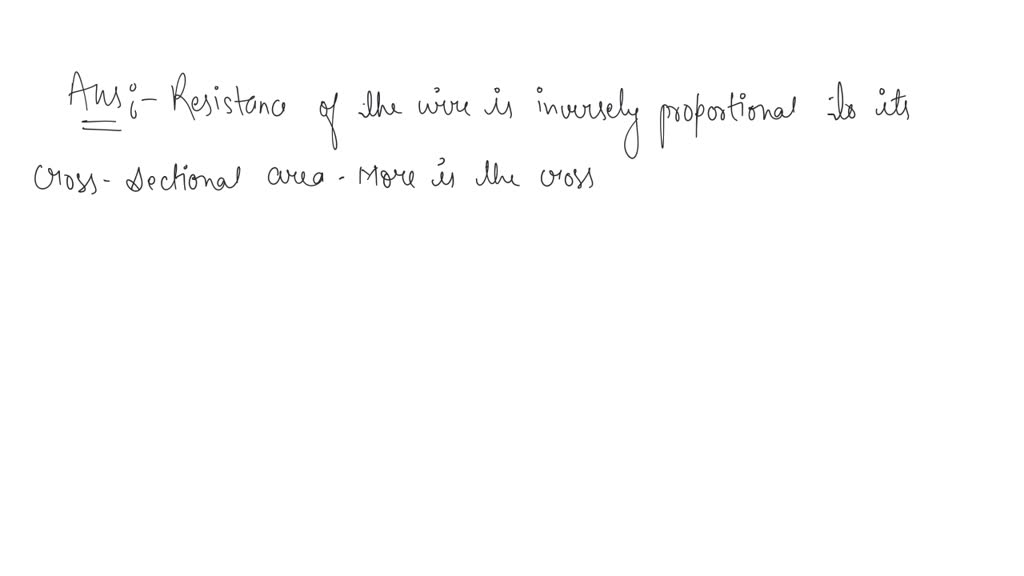 Ans:- Resistance of the wire is inversely proportional to its
cross-sectional area. More is the cross